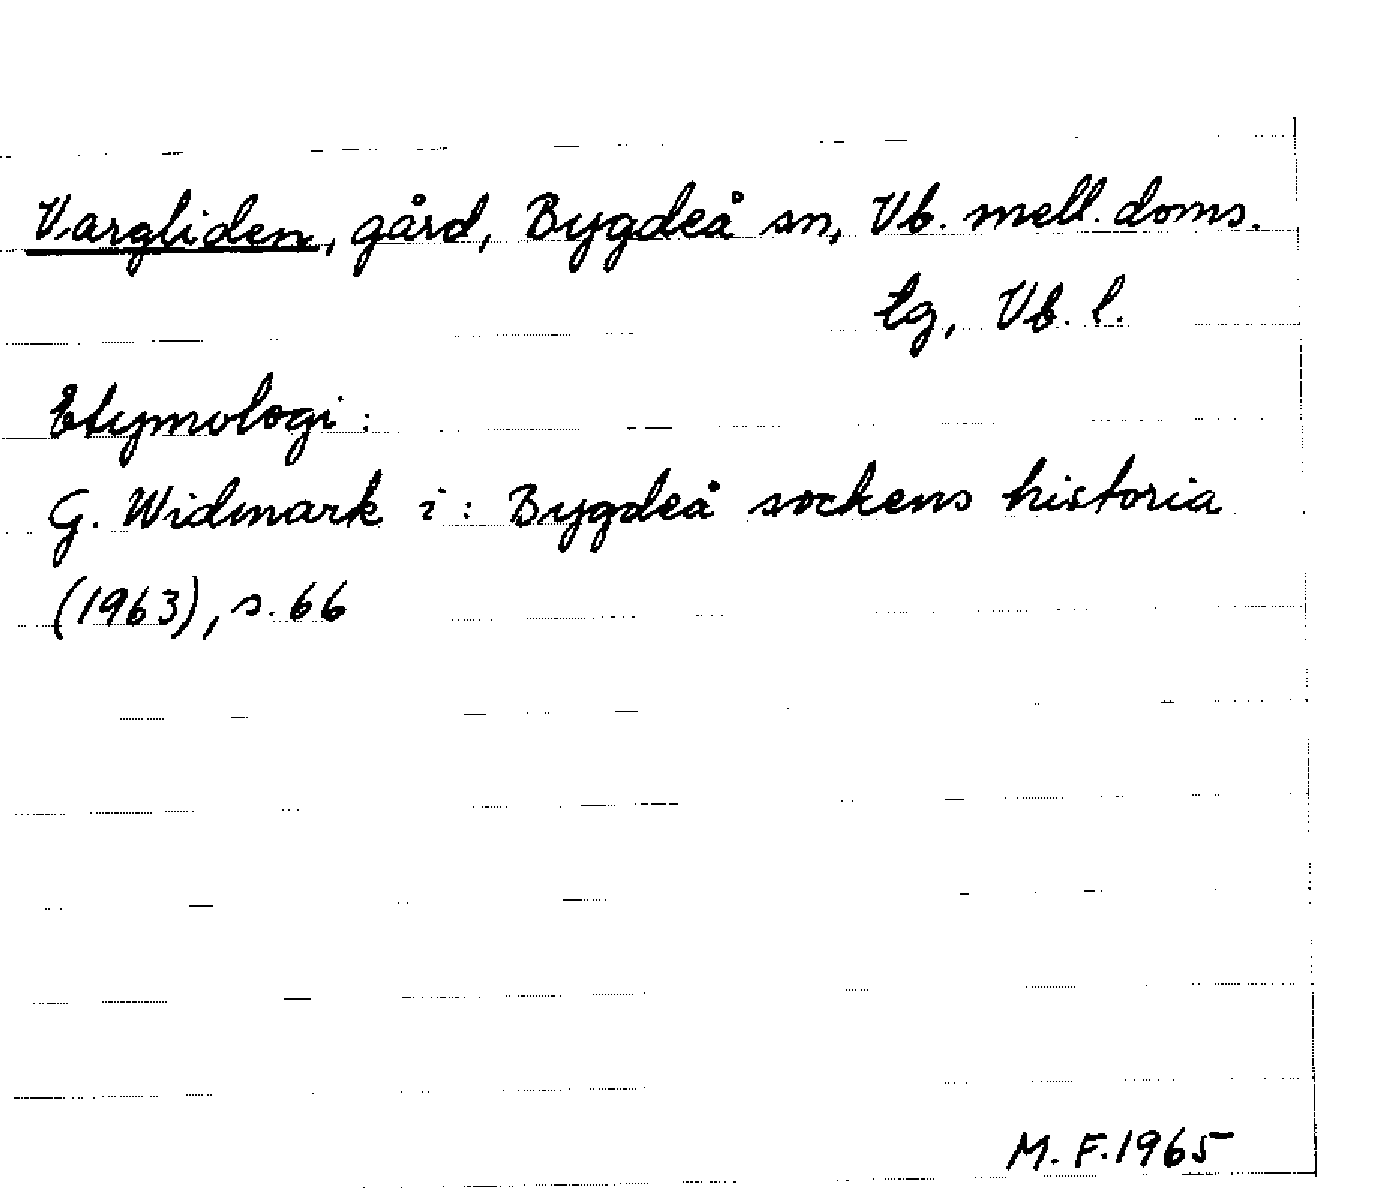 Vargliden, gård, Bygdeå sn, Vb. mell. doms.
tg, Vb. l.
Etymologi:
G. Widmark i: Bygdeå sockens historia
(1963), s. 66
M. F. 1965